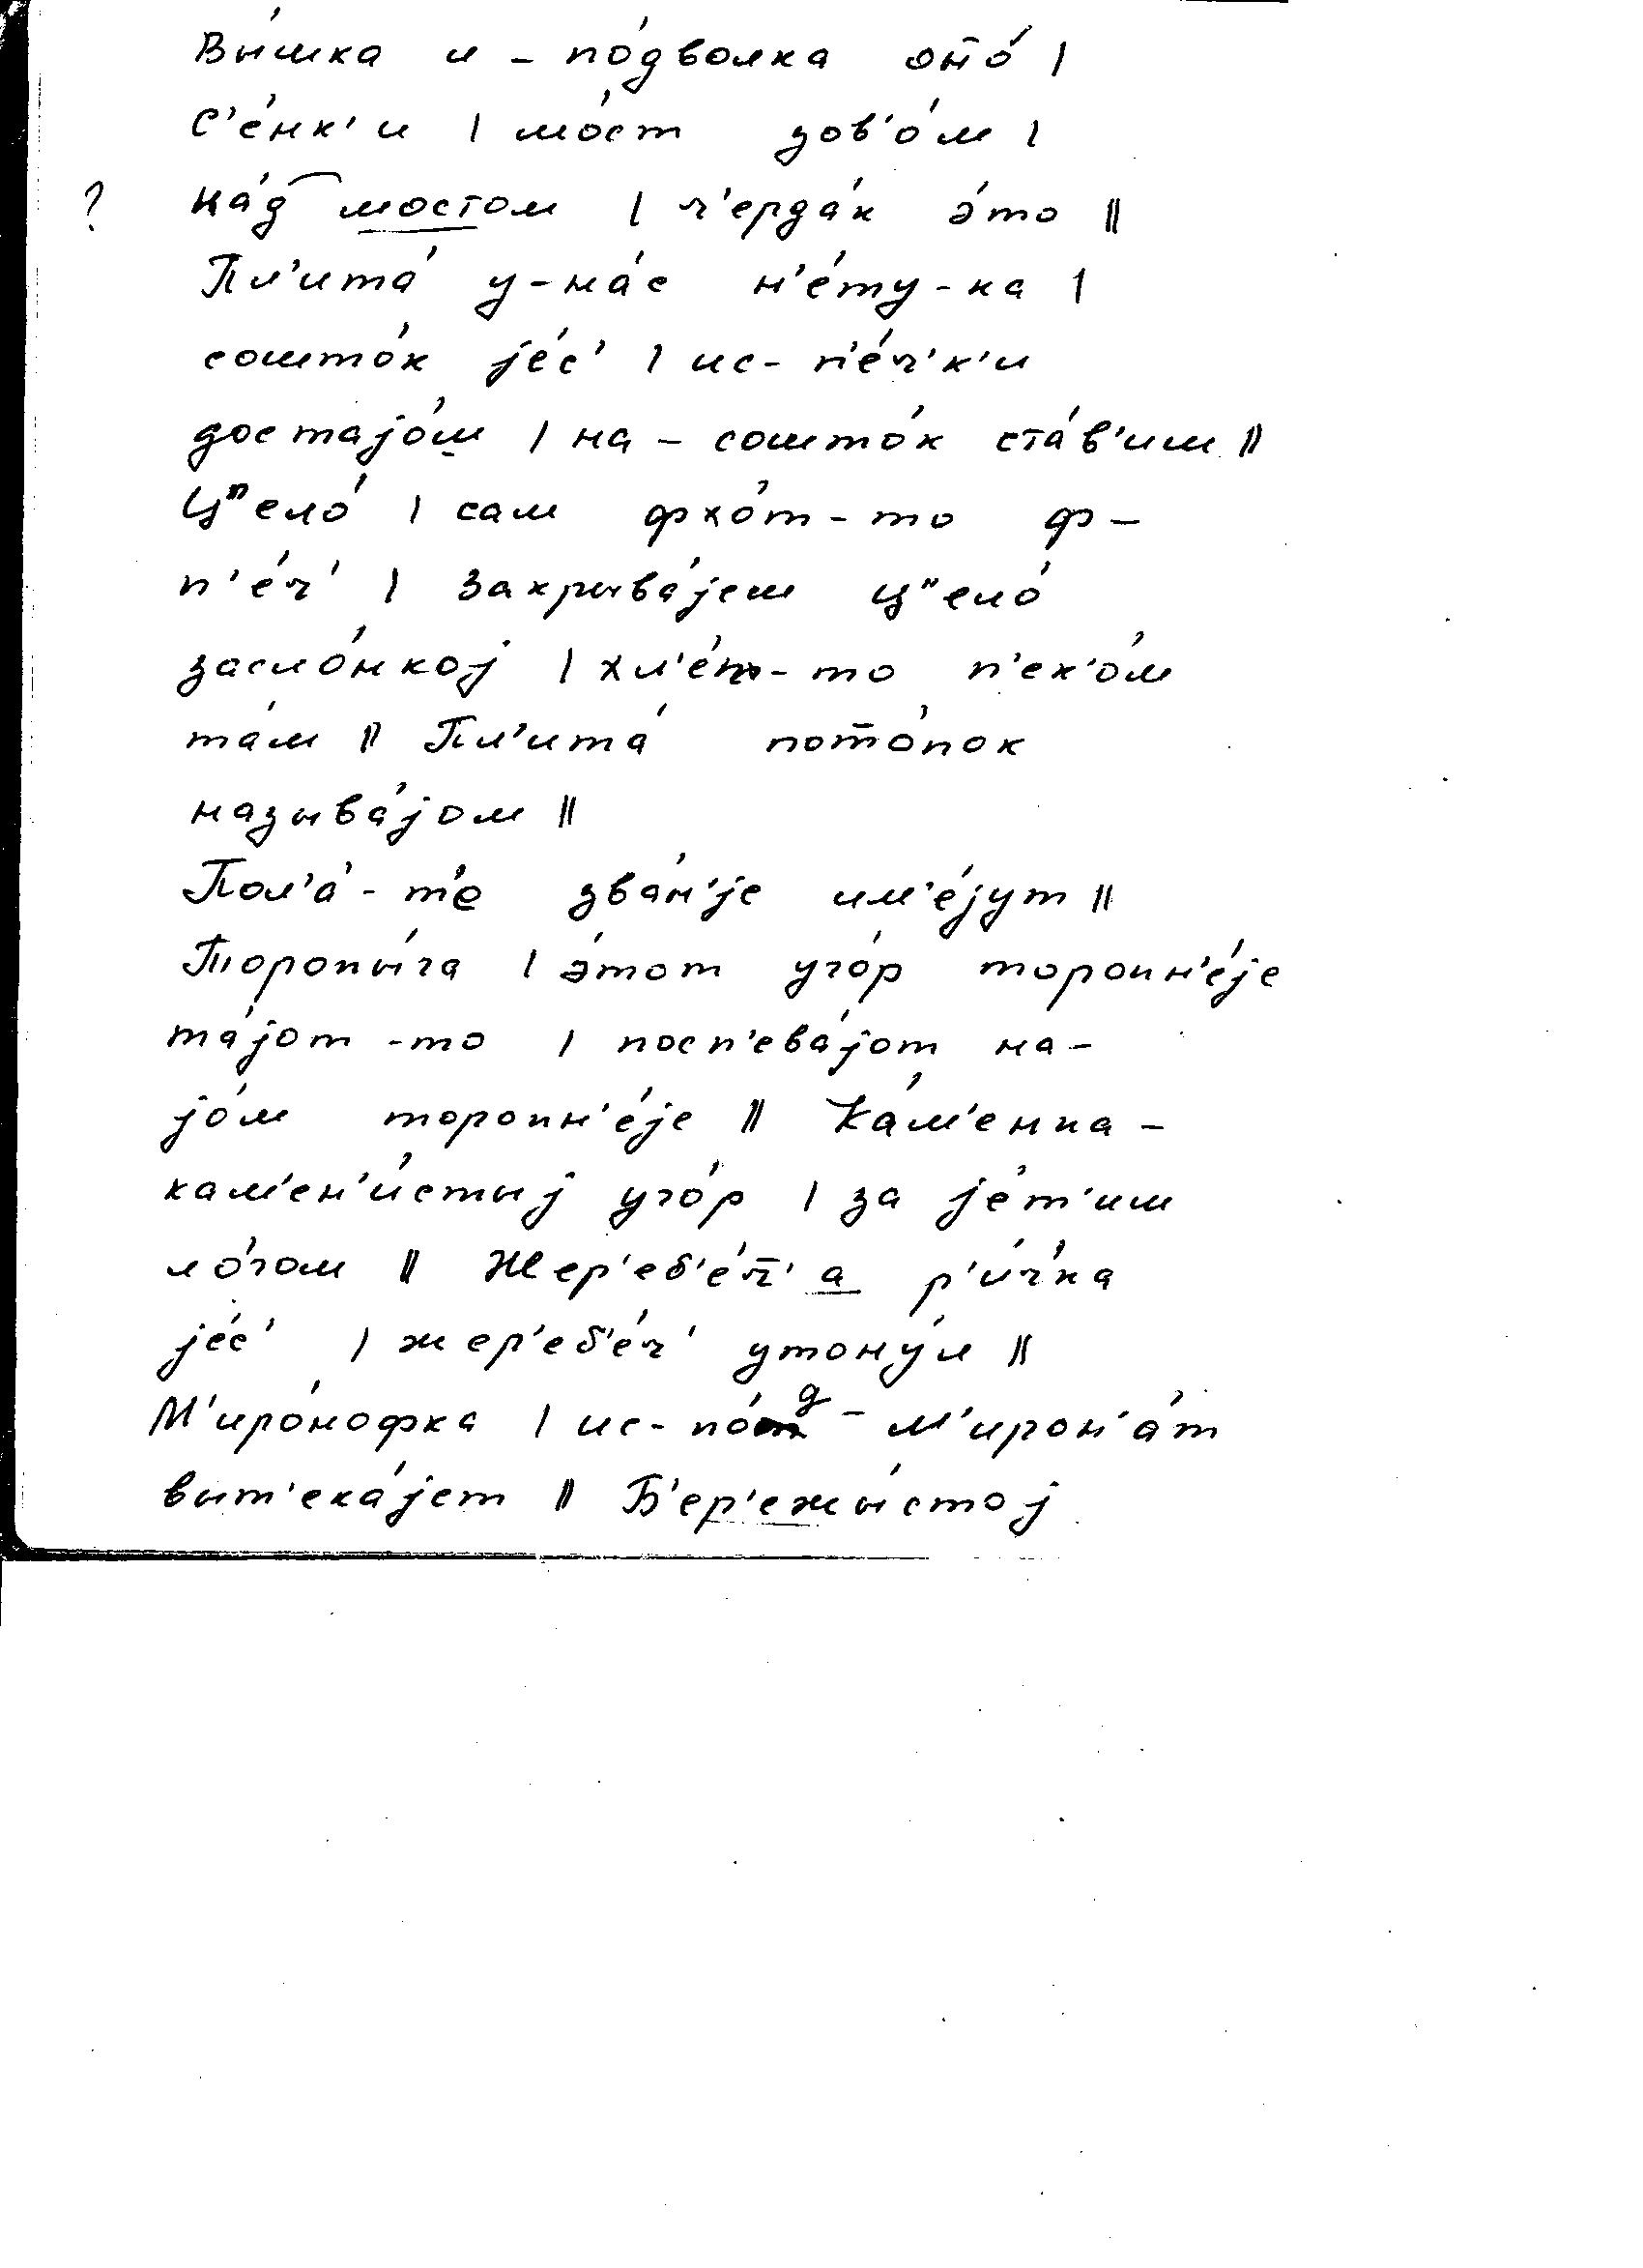 Вы́шка и - по́дволка оно̄́ |
С'е́нк'и | мо́ст зов'о́м |
? На́д мостом | ч'ерда́к э́то ||
Пл'ита́ у-на́с н'е́ту-ка |
сошто́к jе́с' | ис- п'е́ч'к'и
достаjо́ш | на - сошто́к ста́в'иш ||
Цᵑело́ | сам фхо́т-то ф -
п'е́ч' | Закрыва́jеш цᵑело́
засло́нкоj | хл'е́п-то п'ек'о́м
та́м || Пл'ита́ пот̄о́пок
называ́jом ||
Пол'а́ - т'е зва́н'jе им'е́jут ||
Торопы́га | э́тот уго́р торопн'е́jе
та́jот -то | посп'ева́jот на -
jо́м торопн'е́jе || Ка́м'енка -
кам'ен'и́стыj уго́р | за jе́т'им
ло́гом || Жер'еб'е́ч̄'а р'и́ч'ка
jе́с' | жер'еб'е́ч' утону́л ||
М'иро́нофка | ис- по́д - м'ирон'а́т
выт'ека́jет || Б'ер'ежы́стоj